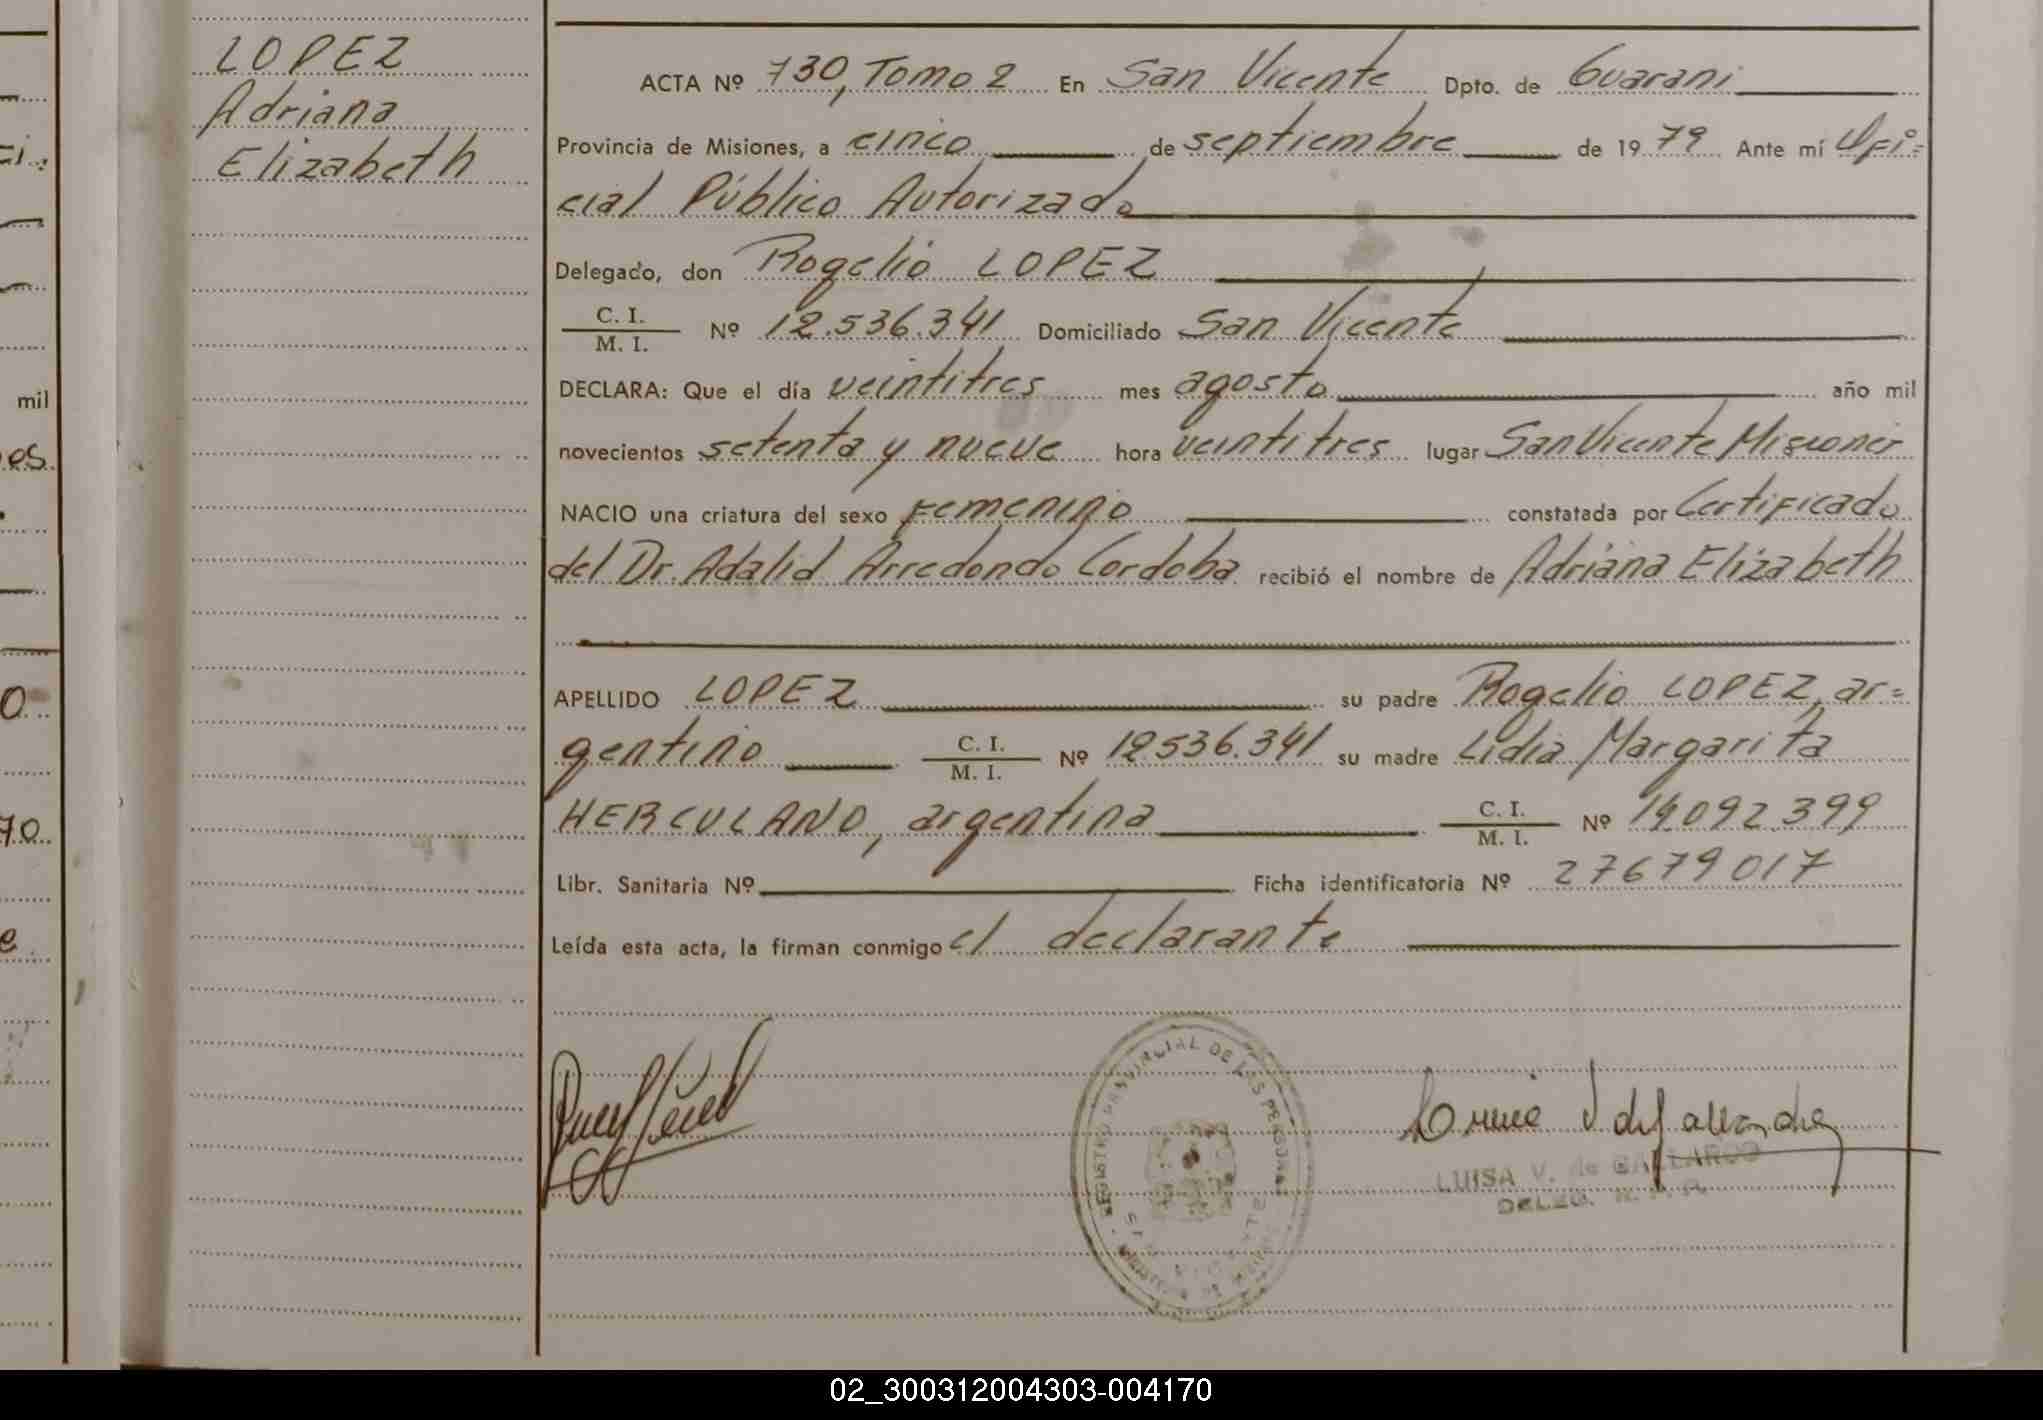 LOPEZ
Adriana
Elizabeth
ACTA Nº 730, Tomo 2 En San Vicente Dpto. de Guarani
Provincia de Misiones, a cinco de septiembre de 1979 Ante mí Ofi=
cial Público Autorizado
Delegado, don Rogelio LOPEZ
C. I.
M. I. Nº 12.536.341 Domiciliado San Vicente
DECLARA: Que el día veintitres mes agosto año mil
novecientos setenta y nueve hora veintitres lugar San Vicente Misiones
NACIO una criatura del sexo femenino constatada por Certificado
del Dr. Adalid Arredondo Cordoba recibió el nombre de Adriana Elizabeth
APELLIDO LOPEZ su padre Rogelio LOPEZ, ar=
gentino C. I.
M. I. Nº 12.536.341 su madre Lidia Margarita
HERCULANO, argentina C. I.
M. I. Nº 14.092.399
Libr. Sanitaria Nº Ficha identificatoria Nº 27679017
Leída esta acta, la firman conmigo el declarante
REGISTRO PROVINCIAL DE LAS PERSONAS
LUISA V. de GALLARDO
DELEG. R. P. P.
mil
es.
0
70
e
02_300312004303-004170